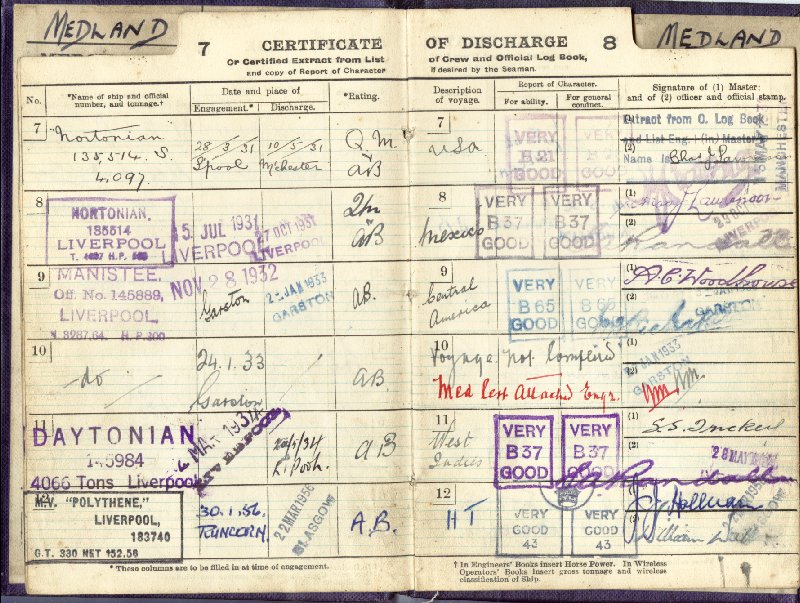 MEDLAND
MEDLAND
7 CERTIFICATE OF DISCHARGE 8
Or Certified Extract from List of Crew and Official Log Book,
and copy of Report of Character if desired by the Seaman.
No.
*Name of ship and official number, and tonnage.†
Date and place of
Engagement.*
Discharge.
*Rating.
Description of voyage.
Report of Character.
For ability.
For general conduct.
Signature of (1) Master; and of (2) officer and official stamp.
7
Nortonian
135514 S.
4,097.
28/3/31
L'pool
10/5/31
M'chester
Q.M.
AB
7
USA
VERY
B 21
GOOD
VERY
GOOD
Extract from O. Log Book
and List Eng. 1 (in) Master
Name Is
MANCHESTER
8
NORTONIAN.
135514
LIVERPOOL
5 JUL 1931
LIVERPOOL
27 OCT 1931
LIVERPOOL
AB
8
Mexico
VERY
B 37
GOOD
VERY
B 37
GOOD
(1)
(2)
Randall
9
MANISTEE.
Off. No. 145888,
LIVERPOOL,
N. 3287,64. H.P. 300
NOV 28 1932
Garston
JAN 1933
GARSTON
AB.
9
Central
America
VERY
B 65
GOOD
VERY
B 65
GOOD
(1)
A.C. Woodhouse
(2)
GARSTON
10
do
24.1.33
Garston
AB
10
Voyage not completed
Med Cert Attached Engr.
(1)
(2)
JAN 1933
GARSTON
11
DAYTONIAN
145984
4066 Tons Liverpool
MAR 1934
LIVERPOOL
AB
11
West
Indies
VERY
B 37
GOOD
VERY
B 37
GOOD
(1)
(2)
28 MAY
Randall
12
M.V. "POLYTHENE,"
LIVERPOOL,
183740
G.T. 330 NET 152.56
30.1.56.
RUNCORN.
22 MAR 1956
GLASGOW
A.B.
12
HT
VERY
GOOD
43
VERY
GOOD
43
(1)
Hollman
(2)
William
* These columns are to be filled in at time of engagement.
† In Engineers' Books insert Horse Power. In Wireless
Operators' Books insert gross tonnage and wireless
classification of Ship.